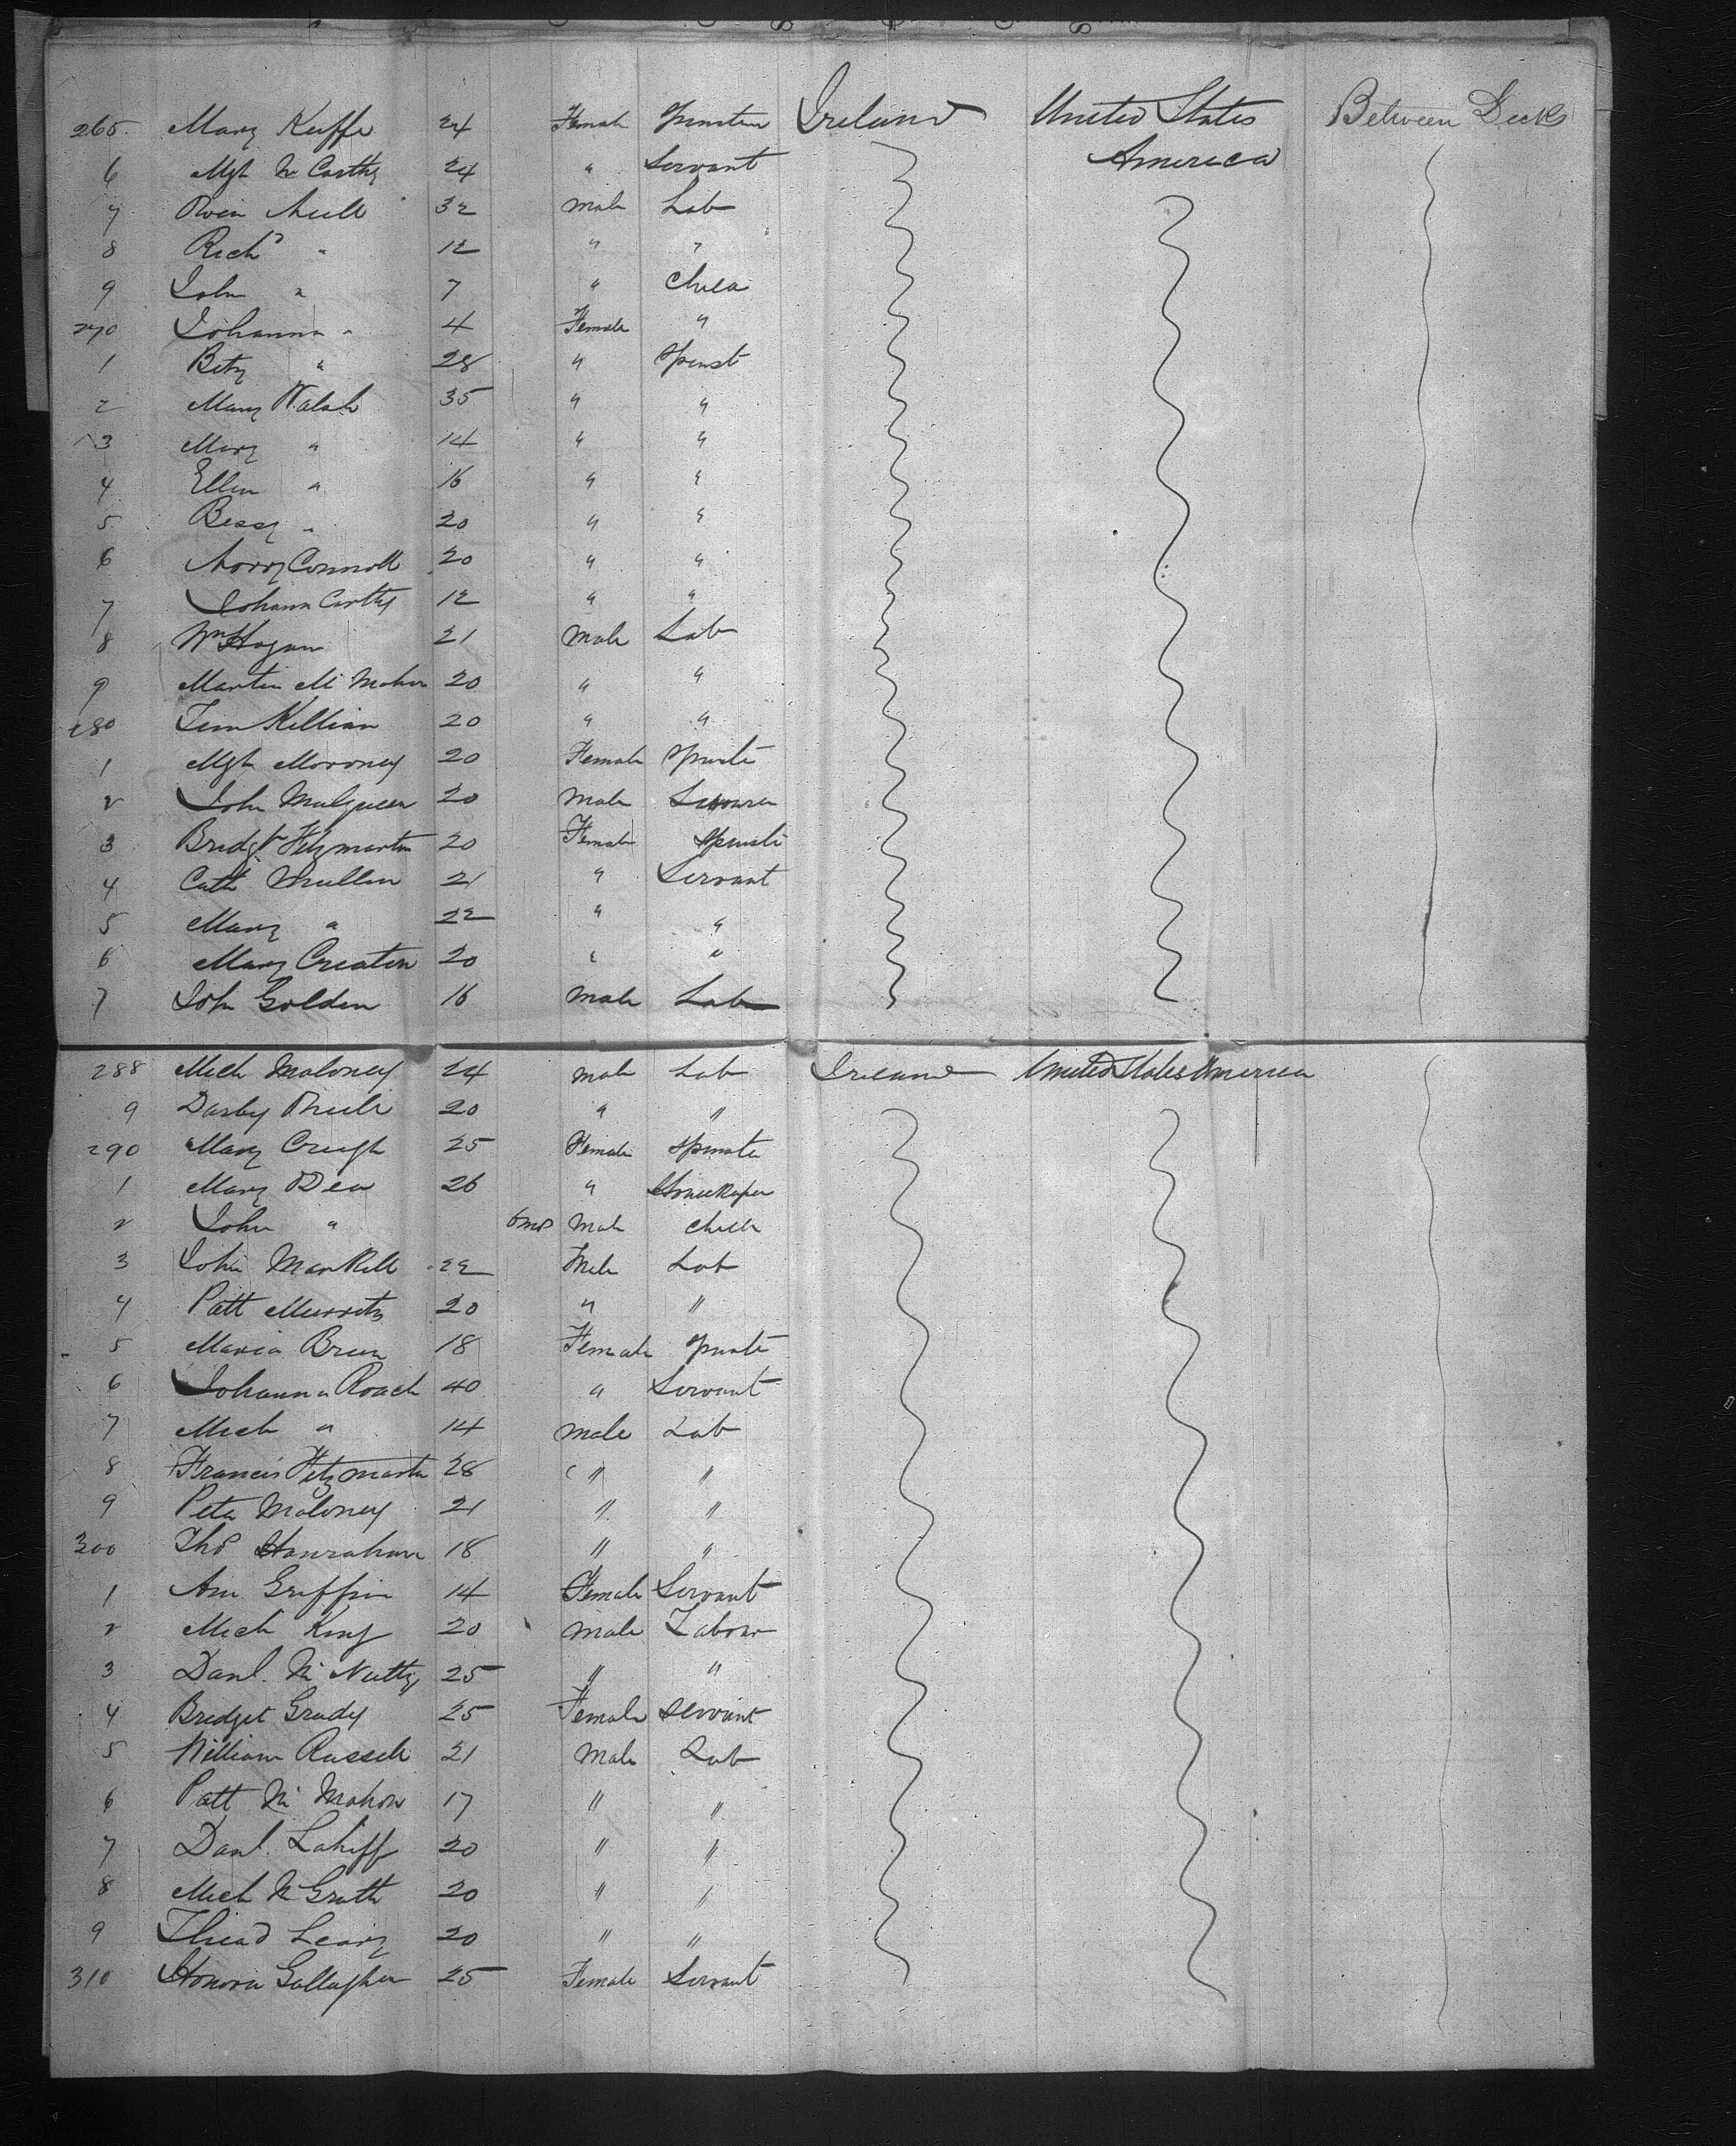 265 Mary Keeffe 24 Female Spinster Ireland United States Between Decks
America
6 Mgt Mc Carthy 24 " Servant
7 Owen Neill 32 Male Lab
8 Richd " 12 " "
9 John " 7 " Child
270 Johanna " 4 Female "
1 Betsy " 28 " Spinst
2 Mary Walsh 35 " "
3 Mary " 14 " "
4 Ellen " 16 " "
5 Bessy " 20 " "
6 Norry Connell 20 " "
7 Johana Carthy 12 " "
8 Wm Hogan 21 Male Lab
9 Martin Mc Mahon 20 " "
280 Tim Killian 20 " "
1 Mgt Moroney 20 Female Spinste
2 John Mulqueen 20 Male
3 Bridgt Fitzmartin 20 Female Spinste
4 Cath Mullen 21 " Servant
5 Mary " 22 " "
6 Mary Creaton 20 " "
7 John Golden 16 Male Lab
288 Mich Maloney 24 Male Lab Ireland United States America
9 Darby 20 " "
290 Mary Creagh 25 Female Spinster
1 Mary Dea 26 " Housekeeper
2 John " 6 mos Male Child
3 John Markell 22 Male Lab
4 Patt 20 " "
5 Maria Breen 18 Female Spinste
6 Johanna Roach 40 " Servant
7 Mich " 14 Male Lab
8 Francis Fitzmartin 28 " "
9 Peter Maloney 21 " "
300 Thos Hanrahan 18 " "
1 Ann Griffin 14 Female Servant
2 Mich King 20 Male Labour
3 Danl. Mc Nulty 25 " "
4 Bridget Grady 25 Female Servant
5 William Russell 21 Male Lab
6 Patt Mc Mahon 17 " "
7 Danl. Lahiff 20 " "
8 Mich McGrath 20 " "
9 Thead Leary 20 " "
310 Honora Gallagher 25 Female Servant